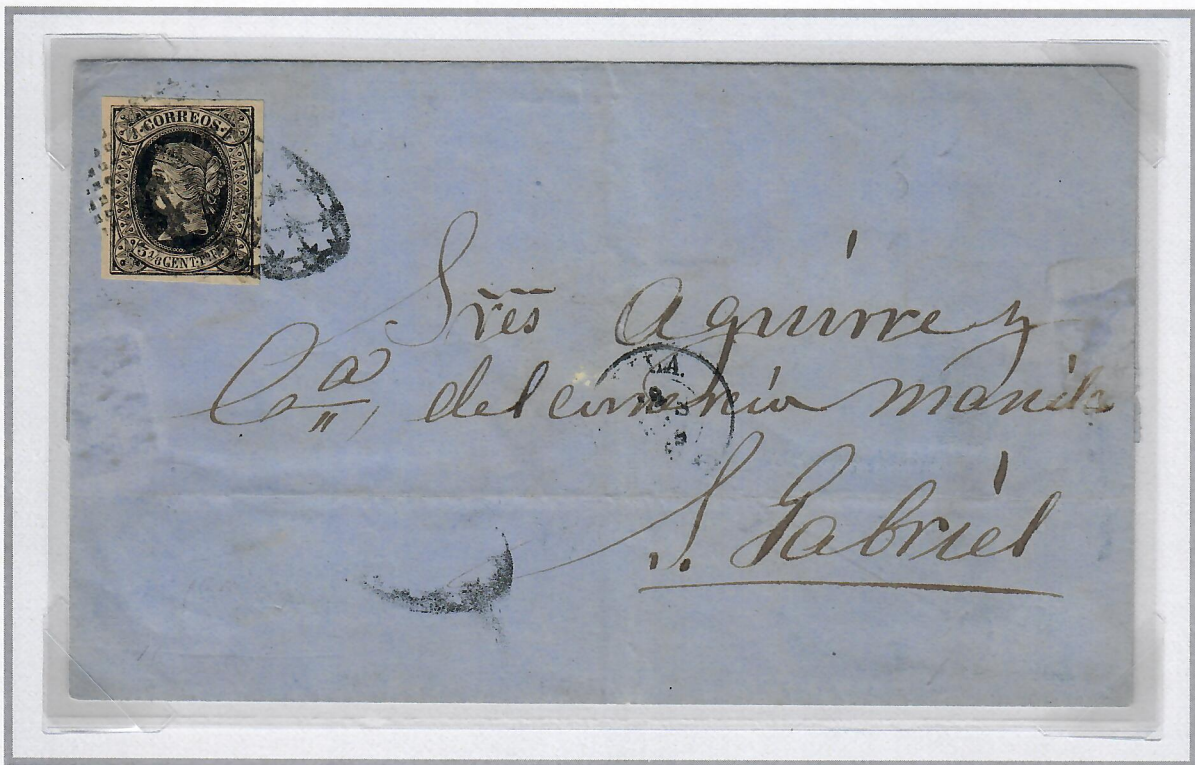 CORREOS
3 1/8 CENT. P. F.
Sres Aguirre y
Ca, del comercio Manila
S. Gabriel